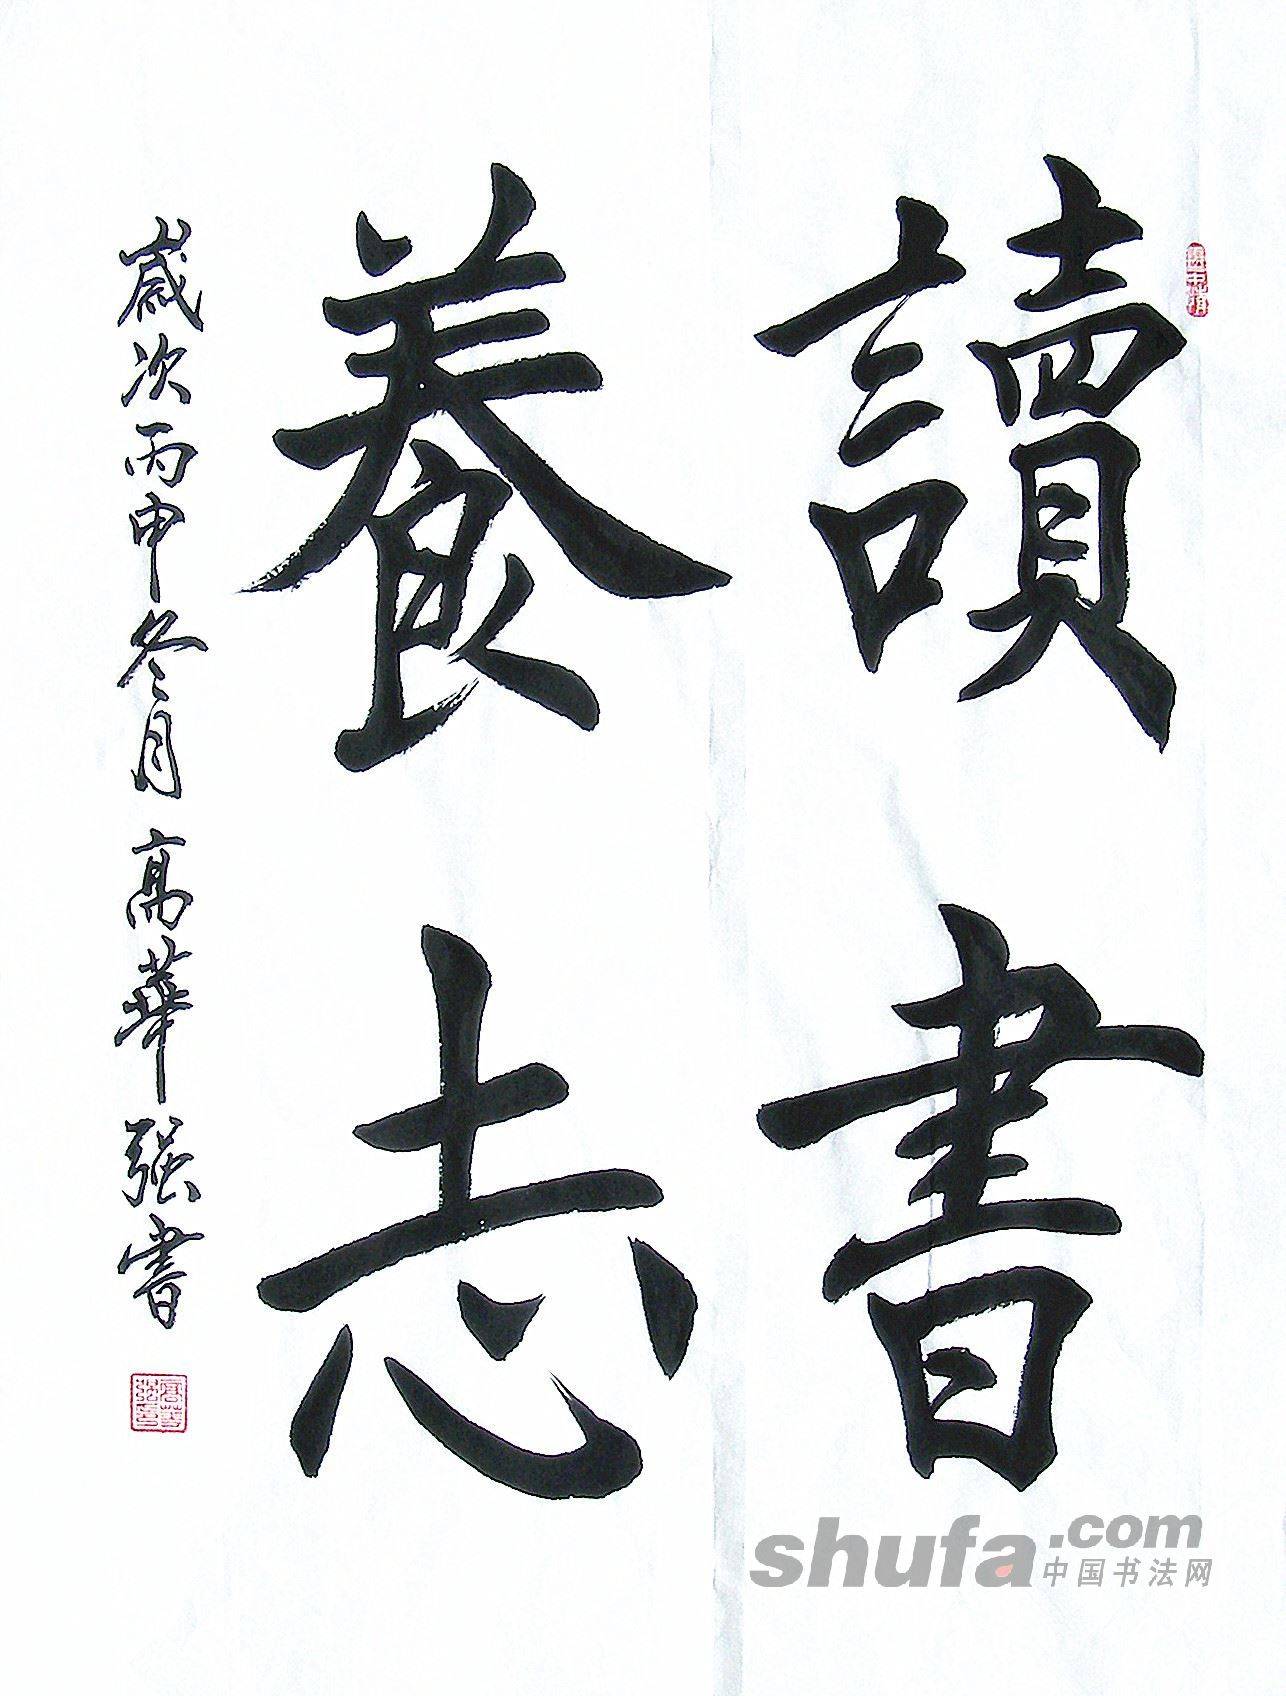 讀書
養志
歲次丙申冬月高華强書
shufa.com
中国书法网